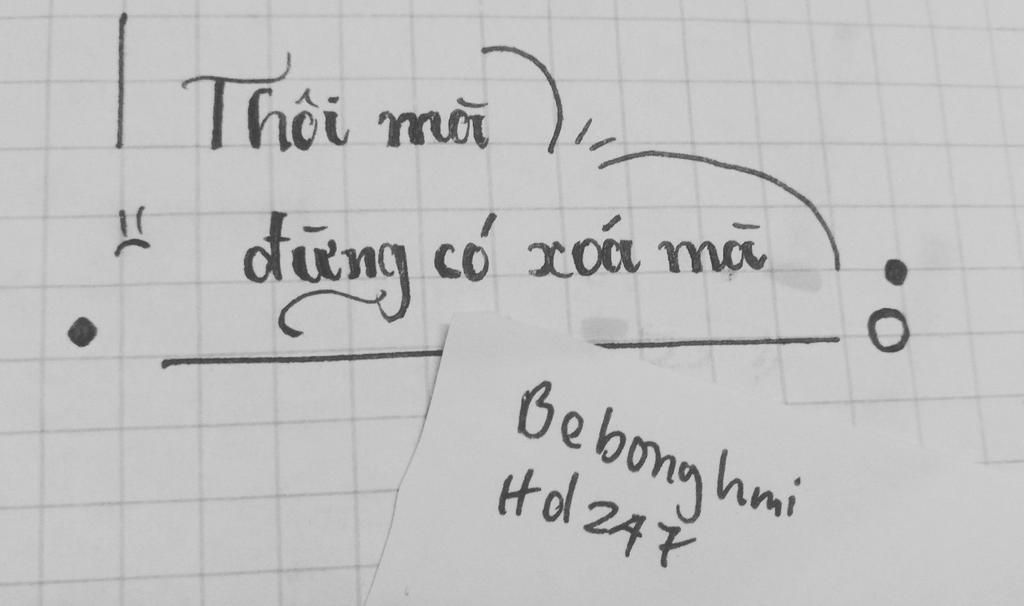 Thôi mà
đừng có xoá mà
Bebonghmi
Hd247